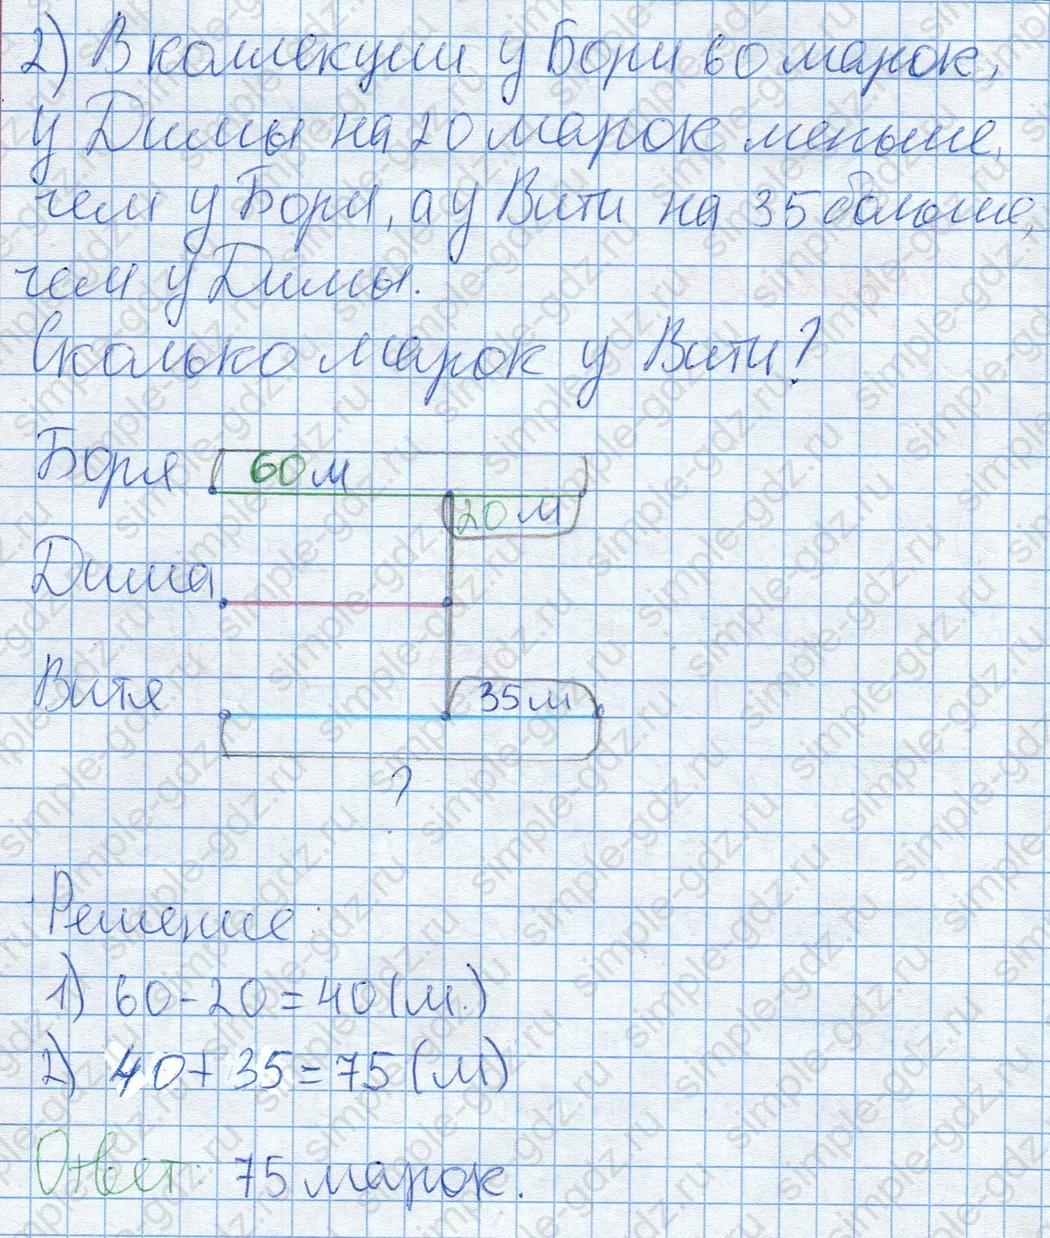 2) В коллекции у Бори 60 марок,
у Димы на 20 марок меньше,
чем у Бори, а у Вити на 35 больше,
чем у Димы.
Сколько марок у Вити?
Боря 60 м
20 м
Дима
Витя 35 м
?
Решение:
1) 60-20=40(м.)
2) 40+35=75(м)
Ответ: 75 марок.
simple-gdz.ru